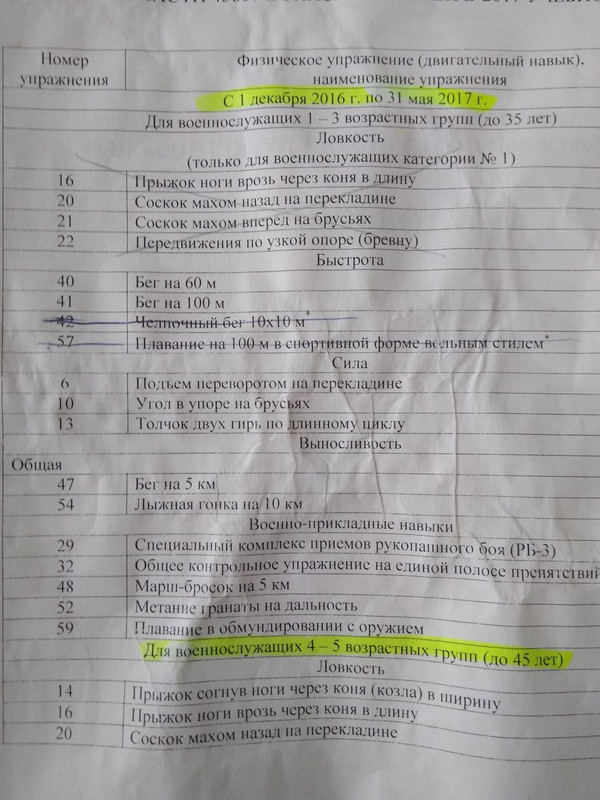 Номер упражнения
Физическое упражнение (двигательный навык), наименование упражнения
С 1 декабря 2016 г. по 31 мая 2017 г.
Для военнослужащих 1 – 3 возрастных групп (до 35 лет)
Ловкость
(только для военнослужащих категории № 1)
16 Прыжок ноги врозь через коня в длину
20 Соскок махом назад на перекладине
21 Соскок махом вперед на брусьях
22 Передвижения по узкой опоре (бревну)
Быстрота
40 Бег на 60 м
41 Бег на 100 м
42 Челночный бег 10х10 м*
57 Плавание на 100 м в спортивной форме вольным стилем*
Сила
6 Подъем переворотом на перекладине
10 Угол в упоре на брусьях
13 Толчок двух гирь по длинному циклу
Выносливость
Общая
47 Бег на 5 км
54 Лыжная гонка на 10 км
Военно-прикладные навыки
29 Специальный комплекс приемов рукопашного боя (РБ-3)
32 Общее контрольное упражнение на единой полосе препятствий
48 Марш-бросок на 5 км
52 Метание гранаты на дальность
59 Плавание в обмундировании с оружием
Для военнослужащих 4 – 5 возрастных групп (до 45 лет)
Ловкость
14 Прыжок согнув ноги через коня (козла) в ширину
16 Прыжок ноги врозь через коня в длину
20 Соскок махом назад на перекладине